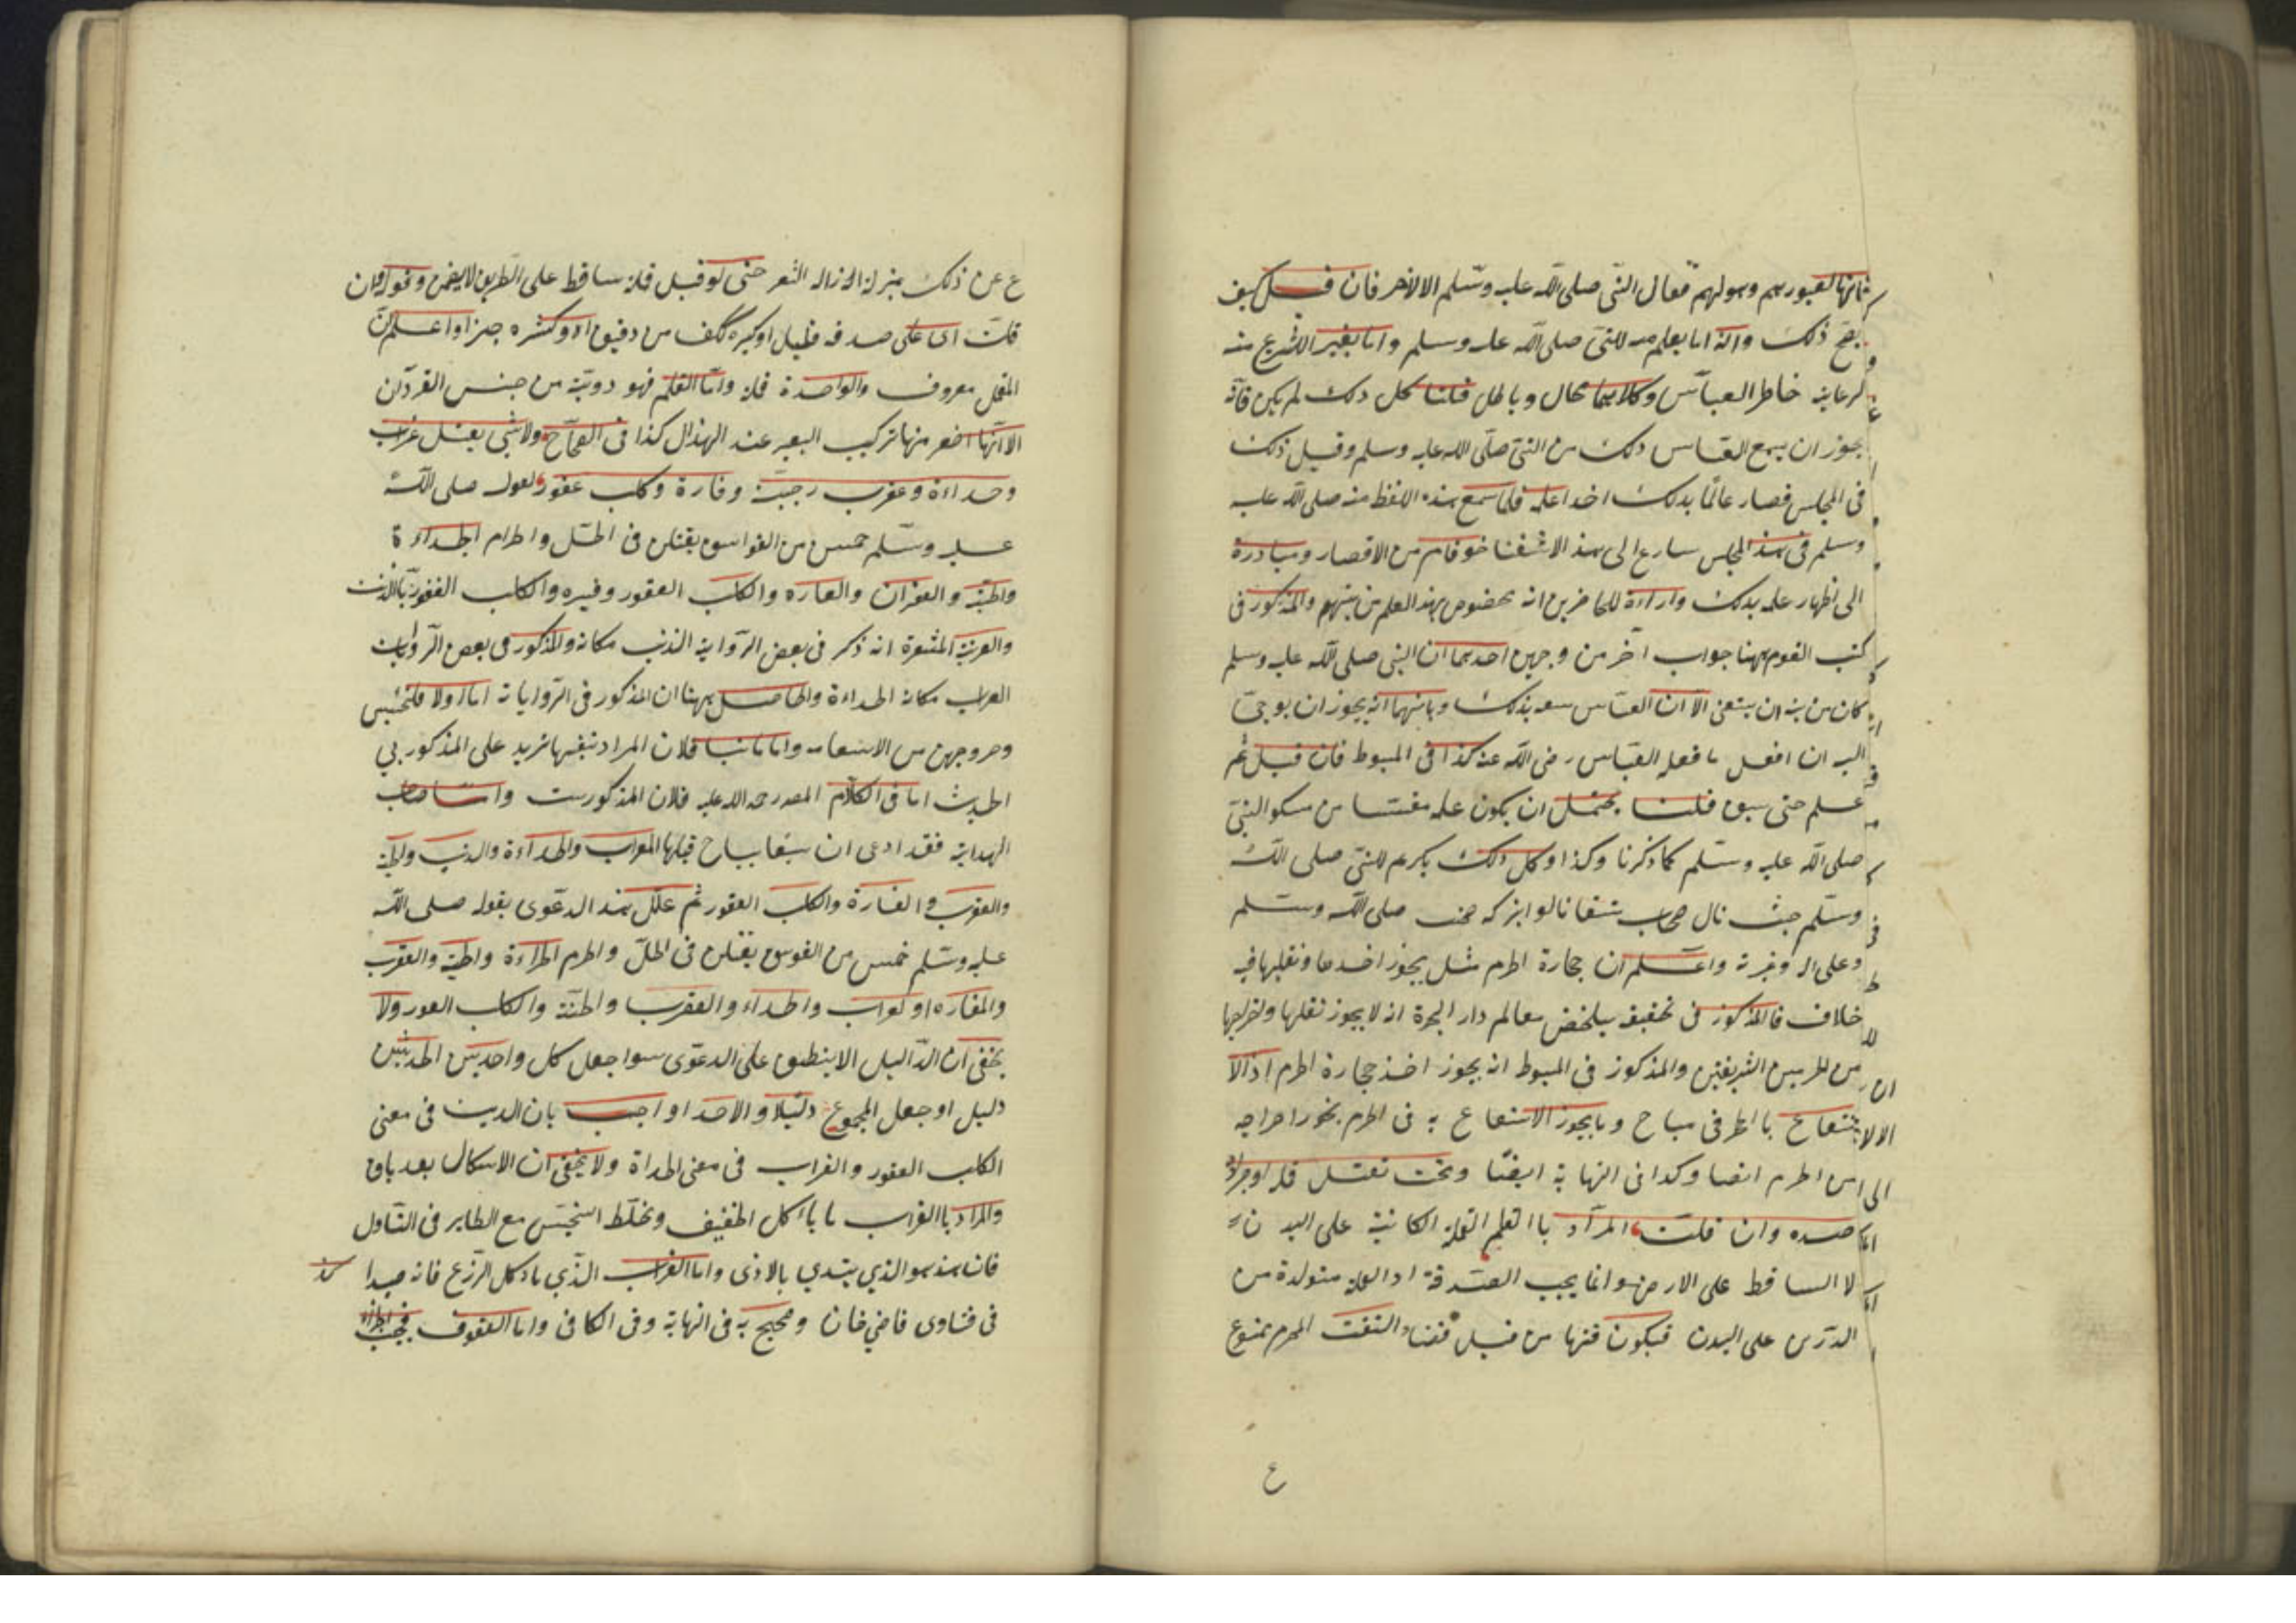 فانها لقبورهم وبيوتهم فقال النبى صلى الله عليه وسلم الا الاذخر فان قيل كيف
يصح ذلك وانه اما تعليم منه للنبى صلى الله عليه وسلم واما تغيير الشرع منه
لرعاية خاطر العباس وكلاهما محال وباطل قلنا كل ذلك لم يكن فانه
يجوز ان يسمع العباس ذلك من النبى صلى الله عليه وسلم وقيل ذلك
فى المجلس فصار عالما بذلك فلما سمع هذه اللفظ منه صلى الله عليه
وسلم فى هذا المجلس سارع الى هذا الاستثنا خوفا من الاقتصار ومبادرة
الى اظهار علمه بذلك واراءة للحاضرين انه مخصوص بهذا العلم من بينهم والمذكور فى
كتب القوم ههنا جواب آخر من وجهين احدهما ان النبى صلى الله عليه وسلم
كان من نيته ان يستثنى الا ان العباس سبقه بذلك وثانيهما انه يجوز ان يوحى
اليه ان افعل ما فعله العباس رضى الله عنه كذا فى المبسوط فان قيل ثم
علم حتى سبق قلنا يحتمل ان يكون علمه مقتبسا من النبى
صلى الله عليه وسلم كما ذكرنا وكذا وكل ذلك للنبى صلى الله
وسلم حيث نال صلى الله وسلم
وعلى اله واعلم ان حجارة الحرم مثل يجوز اخذها ونقلها فيه
خلاف فالمذكور فى تحقيق معالم دار الهجرة انه لا يجوز نقلها واخراجها
من الحرمين الشريفين والمذكور فى المبسوط انه يجوز اخذ حجارة الحرم اذ الا
الانتفاع با الحرفى مباح وما يجوز الانتفاع به فى الحرم يجوز اخراجه
الى من الحرم ايضا وكذا فى النهاية ايضا وتحت تقتل قملة او جرادة
صدقه وان قلت المراد با القلم القملة الكائنة على البدن
لا الساقط على الارض وانما يجب الصدقة اذ القملة متولدة من
الدرن على البدن فيكون قتلها من قبيل التفث المحرم ممنوع
ع
ع عن ذلك بمنزلة ازالة الشعر حتى لو قتل قملة ساقط على الطريق لا يضمن وقوله وان
قلت اى على صدقه قليل او كثيره ككف من دقيق او كسره خبز واعلم ان
القمل معروف والواحدة قملة واما القلم فهو دويبة من جنس القردان
الا انها اصغر منها تركب البعير عند الهزال كذا فى الصحاح ولا شى بقتل غراب
وحداءة وعقرب وحية وفارة وكلب عقور لقوله صلى الله
عليه وسلم خمس من الفواسق يقتلن فى الحل والحرام الحداءة
والحية والعقرب والفاره والكلب العقور وغيره والكلب العقور بالذئب
المشعرة انه ذكر فى بعض الرواية الذئب مكانه والمذكور فى بعض الروايات
الغراب مكان الحداءة والحاصل ههنا ان المذكور فى الروايات اما اولا
واما ثانيا فلان المراد تفسيها تزيد على المذكور بى
الحديث اما فى الكلام المصدر رحمة الله عليه فلان المذكور ست واما صاحب
الهداية فقد ادعى ان ستا يباح قتلها الغراب والحداءة والذئب والحية
والعقرب والفارة والكلب العقور ثم علل هذا الدعوى بقوله صلى الله
عليه وسلم خمس من الفوسق يقتلن فى الحل والحرم الحداءة والحية والعقرب
والفاره او لغراب والحداء والعقرب والحية والكلب العور ولا
يخفى ان الداليل الا ينطبق على الدعوى سوا جعل كل واحد من الحديثين
دليل او جعل المجموع دليلا واجيب بان الذئب فى معنى
الكلب العقور والغراب فى معنى الحداة ولا يخفى ان الاشكال بعد باق
والمراد باالغراب ما يأكل الجيف وتخلط النجس مع الطاهر فى التناول
فان هذا هو الذي يبتدي بالاذى واما الغراب الذي ياكل الزرع فانه صيدا كذ
فى فتاوى قاضي خان وصحيح به فى النهاية وفى الكافى واما العقوق فيجب الجزاء